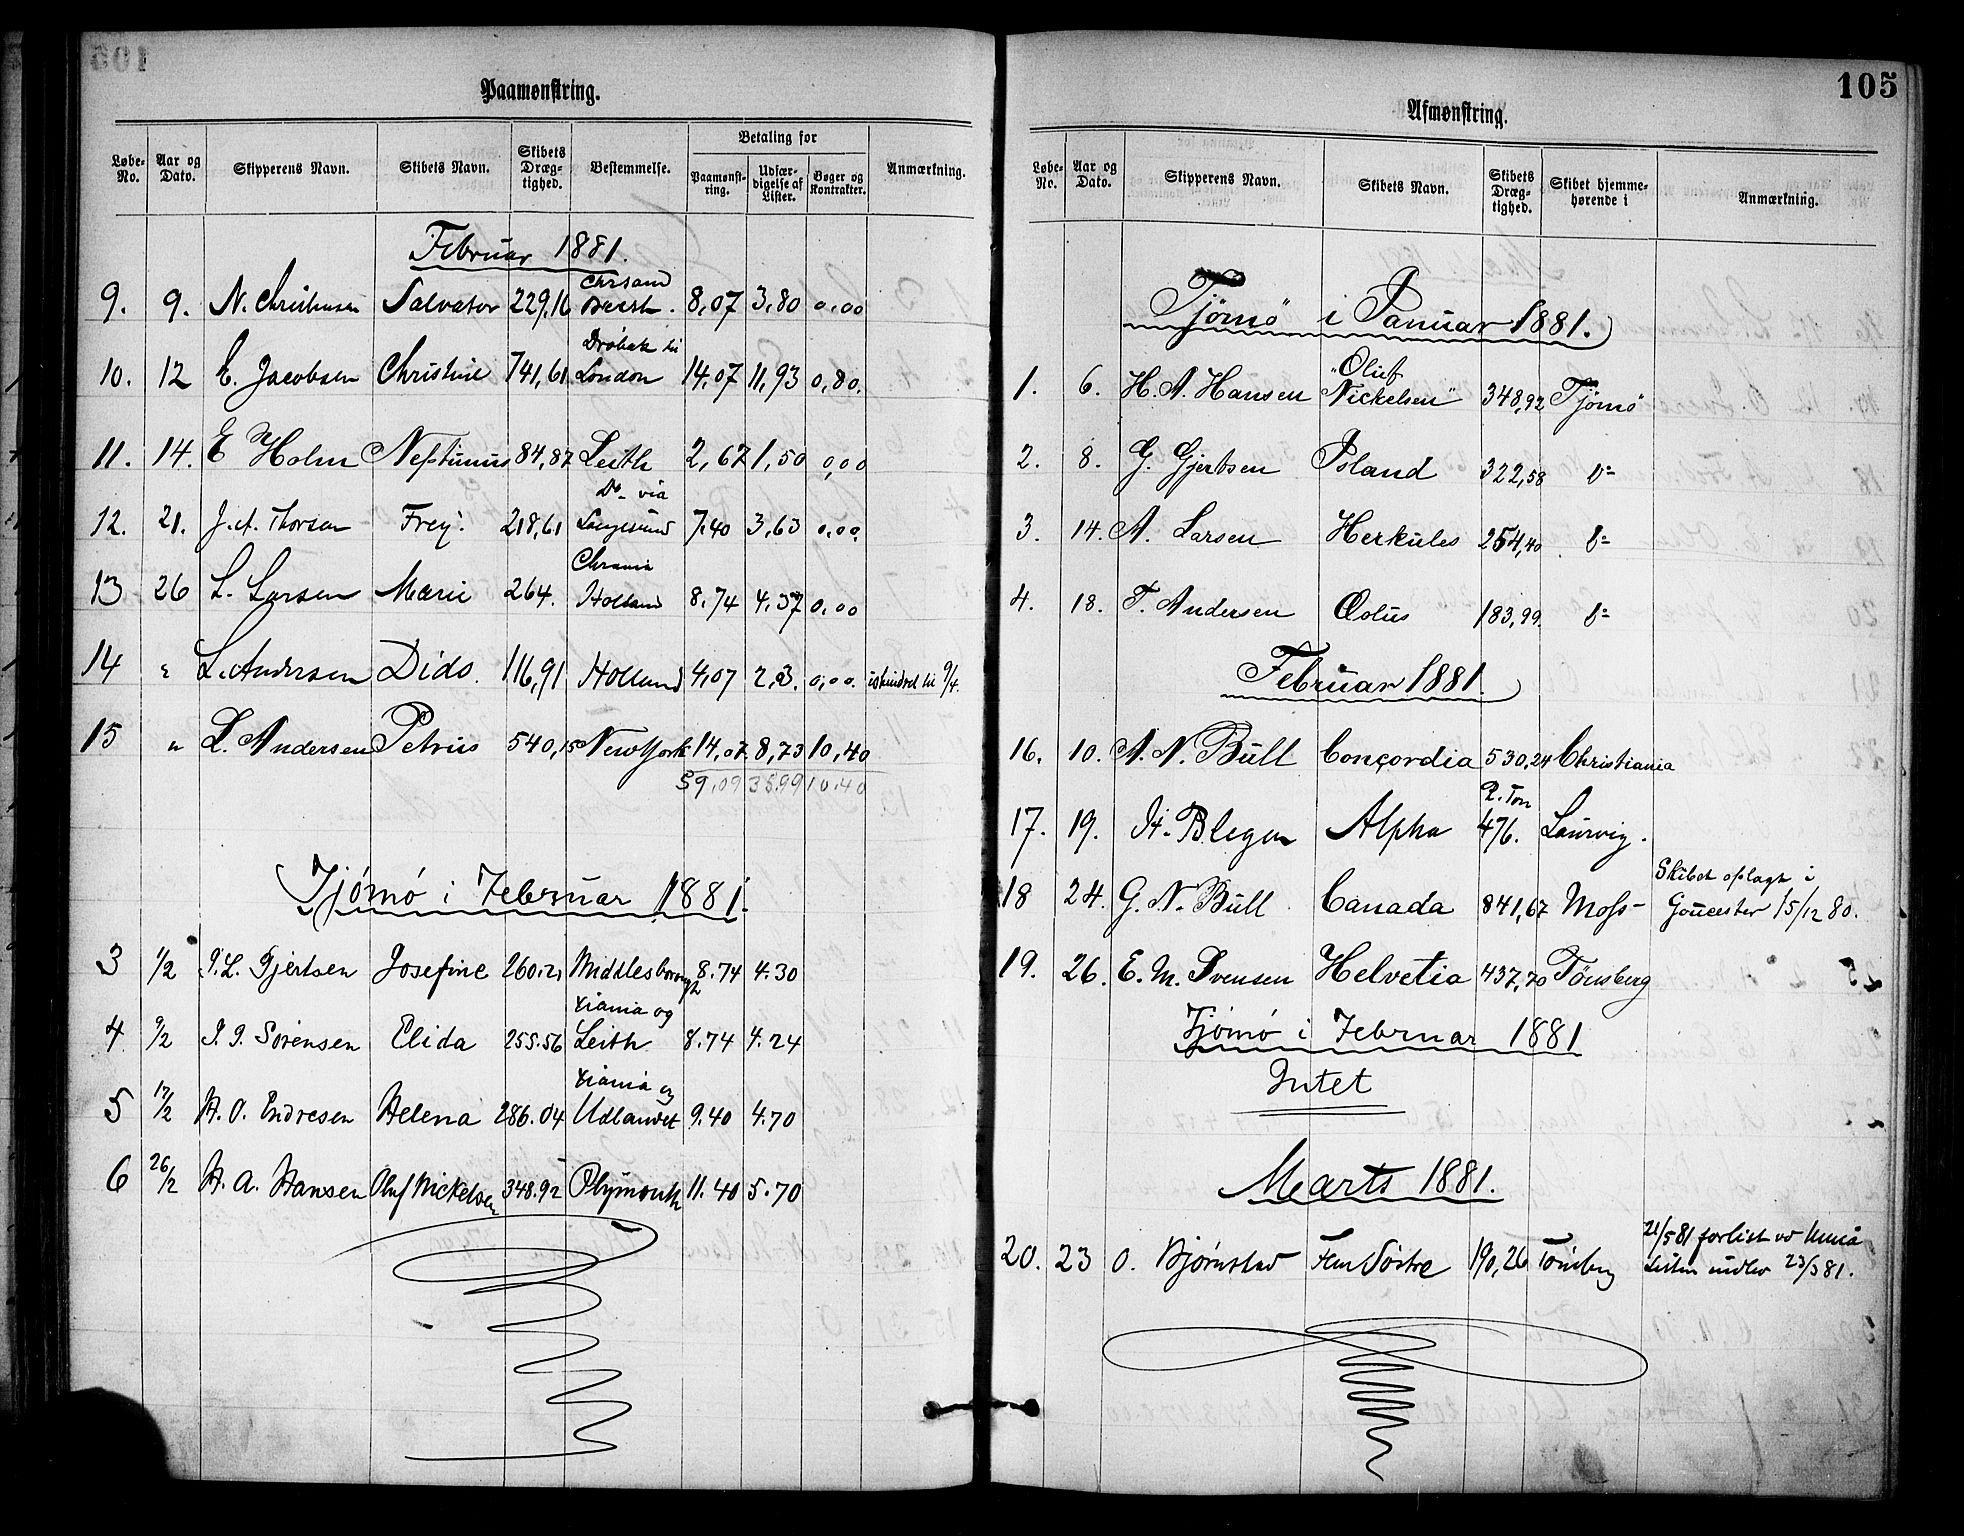 Paamønstring.
Løbe-No. Aar og Dato. Skipperens Navn. Skibets Navn. Skibets Dræg-tighed. Bestemmelse. Betaling for Paamønst-ring. Udfær-digelse af Lister. Bøger og Kontrakter. Anmærkning.
Februar 1881.
Chrsand
9. 9. N. Christensen Salvator 229,16 8,07 3,80 0,00
Dröbak til
10. 12 E. Jacobsen Christine 741,61 London 14,07 11,93 0,80.
11. 14. E Holm Neptunus 84,87 Leith 2,67 1,50 0,00
Do via
12. 21. J. A. Thorsen Frey. 218,61 Langesund 7,40 3,63 0,00.
Chrania
13 26 L. Larsen Marie 264. Holland 8,74 4,37 0,00
14 " L. Andersen Dido. 116,91 Holland 4,07 2,03. 0,00. til 9/4.
15 " L. Andersen Petrus 540,15 New York 14,07 8,73 10,40
59,09 35,99 10,40
Tjömö i Februar 1881.
3 1/2 P. L. Gjertsen Josefine 260.21 Middlesborough 8.74 4.30
Xiania og
4 9/2 Sörensen Elida 255.56 Leith 8.74 4.24
Xiania og
5 17/2 H. O. Endresen Helena 286.04 Udlandet 9.40 4.70
6 26/2 H. A. Hansen Oluf Nickelsen 348.92 Plymouth 11.40 5.70
105
Afmønstring.
Løbe-No. Aar og Dato. Skipperens Navn. Skibets Navn. Skibets Dræg-tighed. Skibet hjemme-hørende i Anmærkning.
Tjömö i Januar 1881.
1. 6. H. A. Hansen "Oluf Nickelsen" 348,92 Tjömö
2. 8. G. Gjertsen Island 322,58 do
3. 14. A. Larsen Herkules 254,40 do
4. 18. T. Andersen Æolus 183,99. do
Februar 1881.
16. 10. A. N. Bull Concordia 530,24 Christiania
R. Ton
17. 19. H. Blegen Alpha 476. Laurvig.
Skibet oplagt i
18 24. G. N. Bull Canada 841,67 Moss- Goucester 15/12 80.
19. 26. E. M. Svensen Helvetia 437,70 Tönsberg
Tjömö i Februar 1881
Intet
Marts 1881.
21/5 81 forlist
20. 23 O. Björnstad Fem Söstre 190,26 Tönsberg Listen 23/5 81.